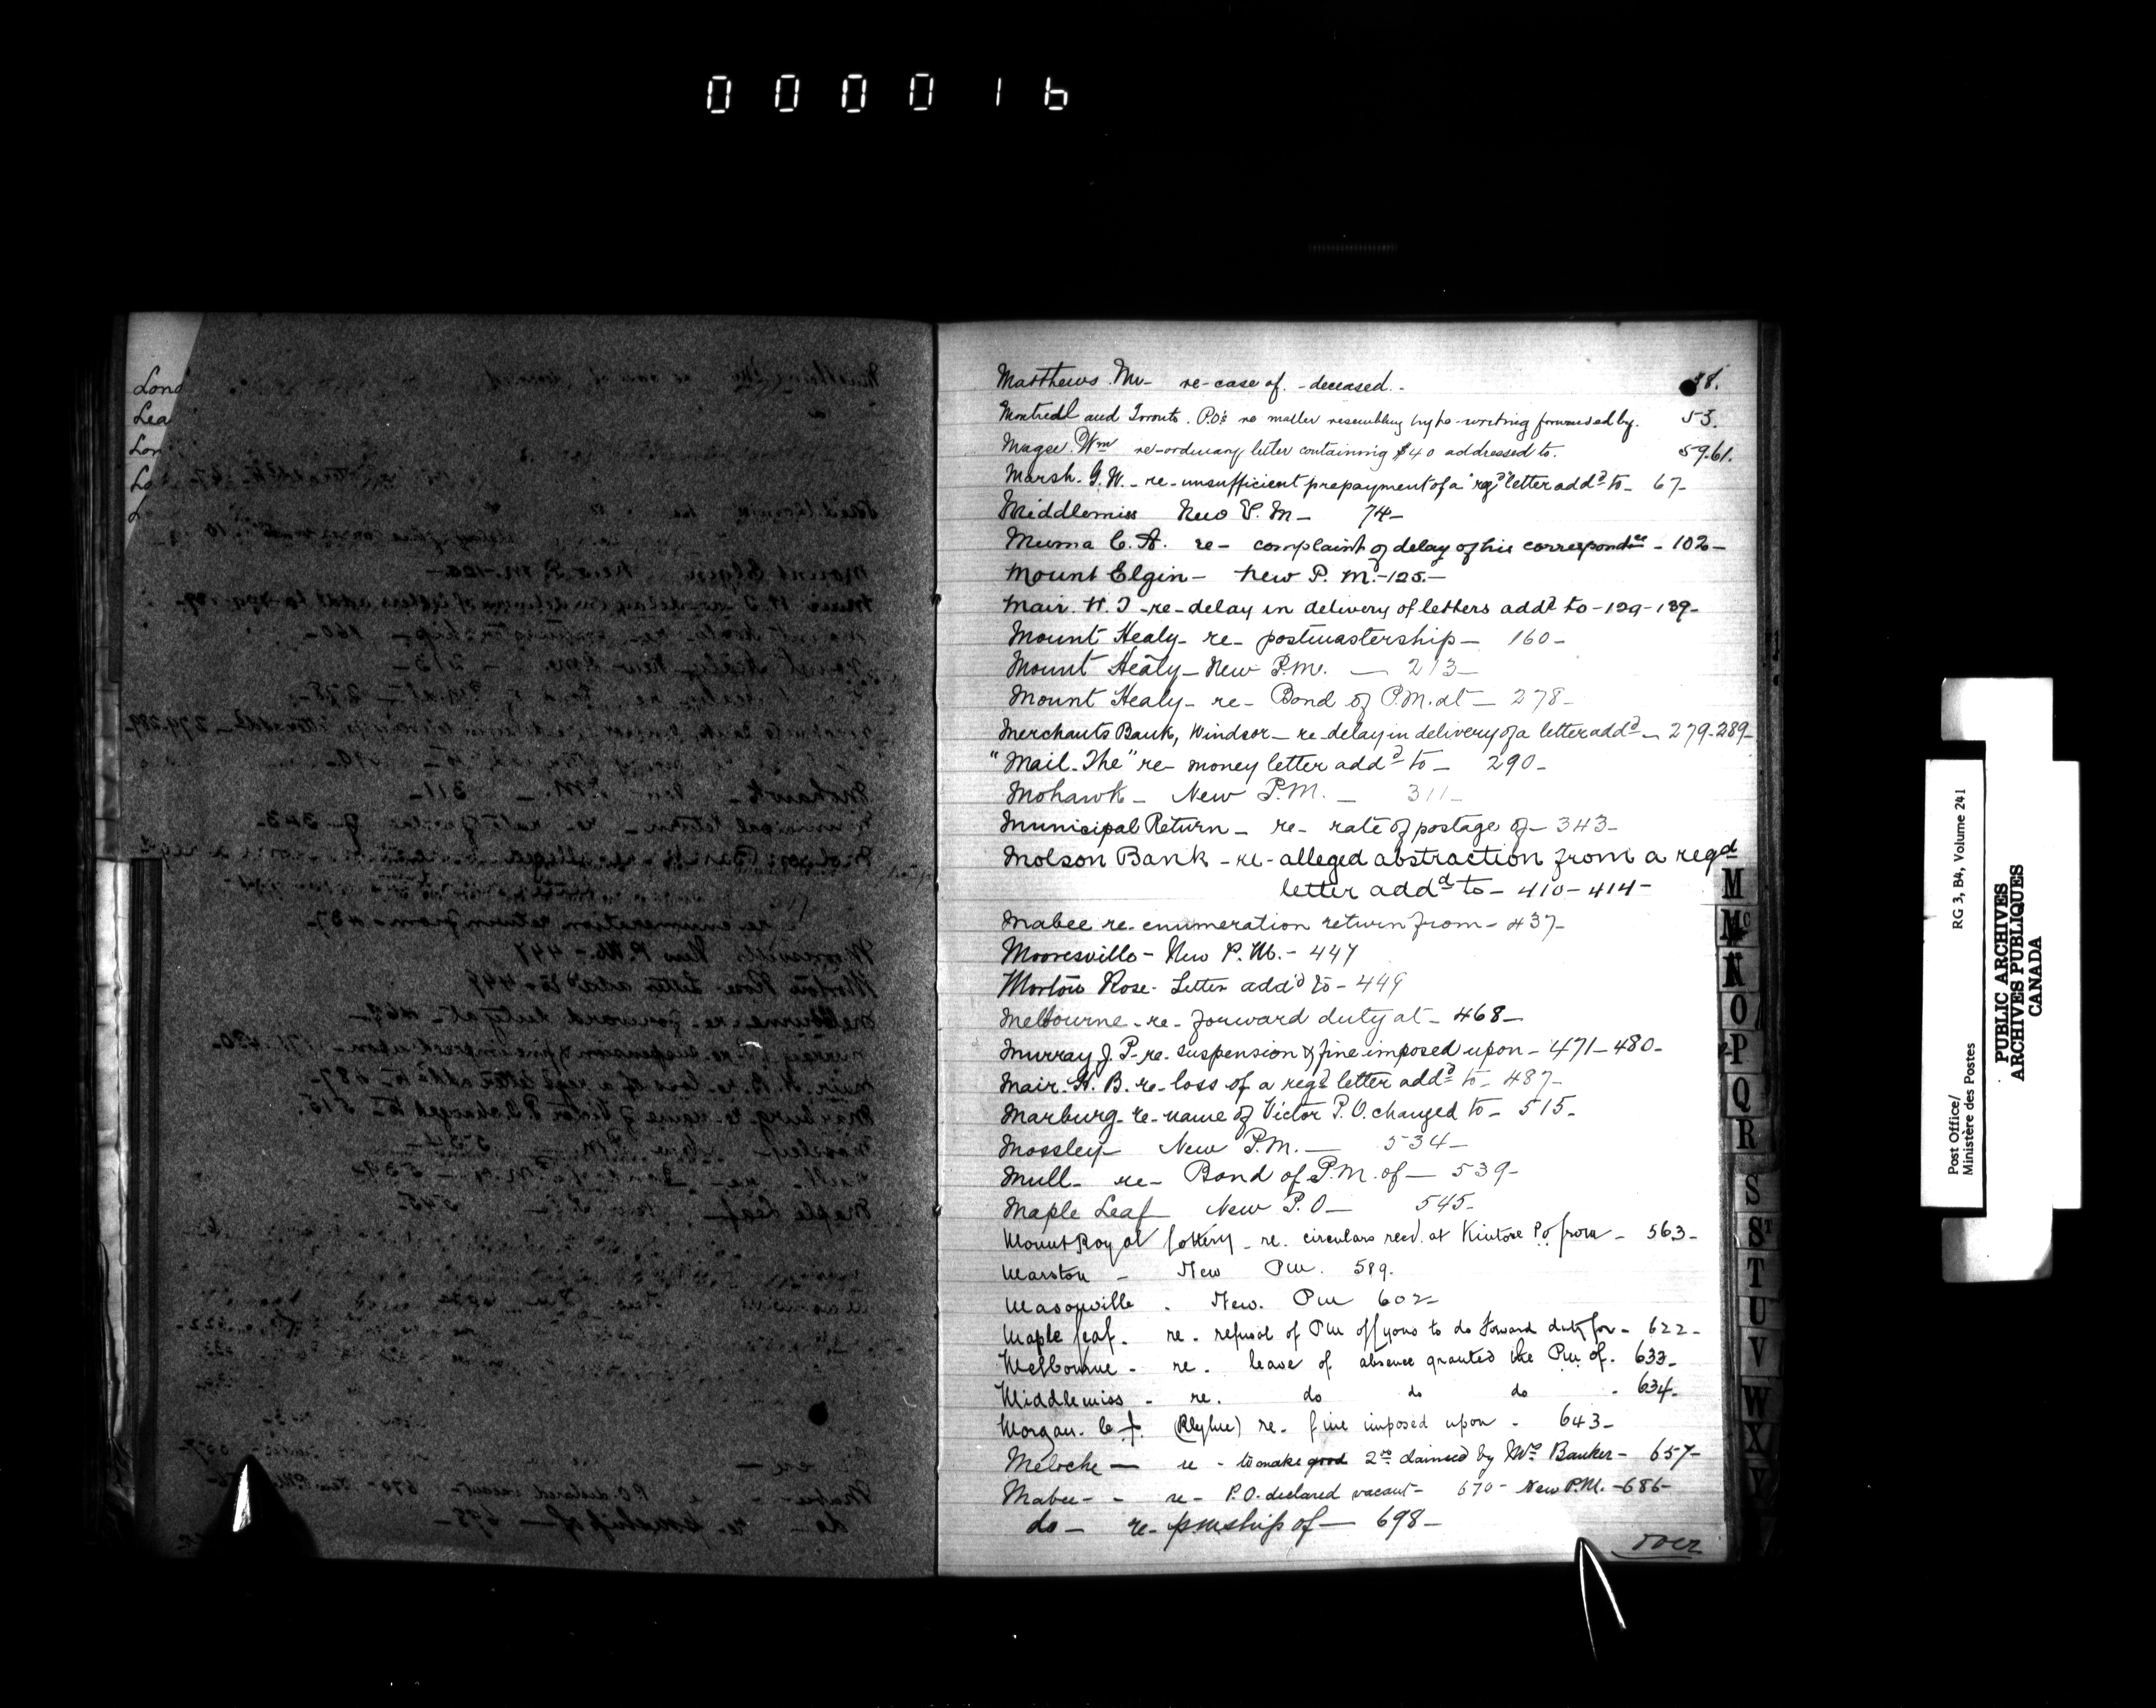 000016
Lond
Lea
Lon
Matthews. Mr - re-case of. - deceased. - 38.
Montreal and Toronto. P.O's re matter resembling type-writing forwarded by. 53.
Magee. Wm re-ordinary letter containing $40 addressed to. 59.61.
Marsh. G.W. - re-unsufficient prepayment of a "reg'd" letter addd to - 67-
Middlemiss New P.M - 74-
Muma C.A. re - complaint of delay of his correspondce - 102-
Mount Elgin - New P.M. - 125.-
Mair. W. J - re-delay in delivery of letters addd to - 129 - 139-
Mount Healy - re - postmastership - 160 -
Mount Healy - New P.M. - 213 -
Mount Healy - re - Bond of P.M. at - 278 -
Merchants Bank, Windsor - re-delay in delivery of a letter addd - 279-289-
"Mail. The" re- money letter addd to - 290 -
Mohawk - New P.M. - 311 -
Municipal Return - re - rate of postage of - 343 -
Molson Bank - re - alleged abstraction from a regd
letter addd to - 410 - 414 -
Mabee re. enumeration return from - 437-
Mooresville - New P.M. - 447
Morton Rose - Letter add'd to - 449
Melbourne - re - forward duty at - 468 -
Murray J. P - re. suspension & fine imposed upon - 471 - 480 -
Mair. H. B. re - loss of a regd letter addd to - 487 -
Marburg - re - name of Victor P.O. changed to - 515 -
Mossley - New P.M. - 534 -
Mull - re - Bond of P.M. of - 539 -
Maple Leaf New P.O - 545 -
Mount Royal Lottery - re. circulars recd. at Kintore Po from - 563 -
Marston - New Pm. 589.
Masonville . New. Pm 602 -
Maple Leaf. re. refusal of Pm Lyons to do forward duty for - 622 -
Melbourne - re. leave of absence granted the Pm of. 633 -
Middlemiss - re. do do do - 634 -
Morgan. C (Blythe) re. fine imposed upon - 643 -
re - to make good 2 claimed by Mrs Banker - 657 -
Mabee - - re - P.O. declared vacant - 670 - New P.M. - 686 -
do - re - pmship of - 698 -
over
M
Mc
N
O
P
Q
R
S
St
T
U
V
W
X
Y
Post Office/
Ministère des Postes
RG 3, B4, Volume 241
PUBLIC ARCHIVES
ARCHIVES PUBLIQUES
CANADA